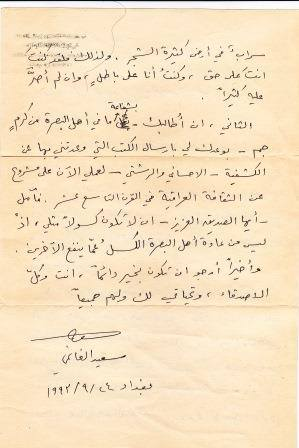 سراب في أرض كثيرة الشجر. ولذلك فلقد كنت
أنت على حق، وكنت أنا على باطل، وإن لم أصر
عليه كثيراً.
الثاني، أن أطالبك - بشفاعة ما في أهل البصرة من كرم
جم - بوعدك لي بارسال الكتب التي وعدتني بها عن
الكشفية - الاحسائي والرشتي - لعملي الآن على مشروع
عن الثقافة العراقية في القرن التاسع عشر. فآمل
- أيها الصديق العزيز - ان لا تكون كسولاً مثلي، اذ
ليس من عادة أهل البصرة الكسل عمّا ينفع الآخرين.
وأخيراً أرجو ان تكون بخير دائماً، انت وكل
الاصدقاء، وتحياتي لك ولهم جميعاً
سعيد الغانمي
بغداد ٢٤/٩/١٩٩٢